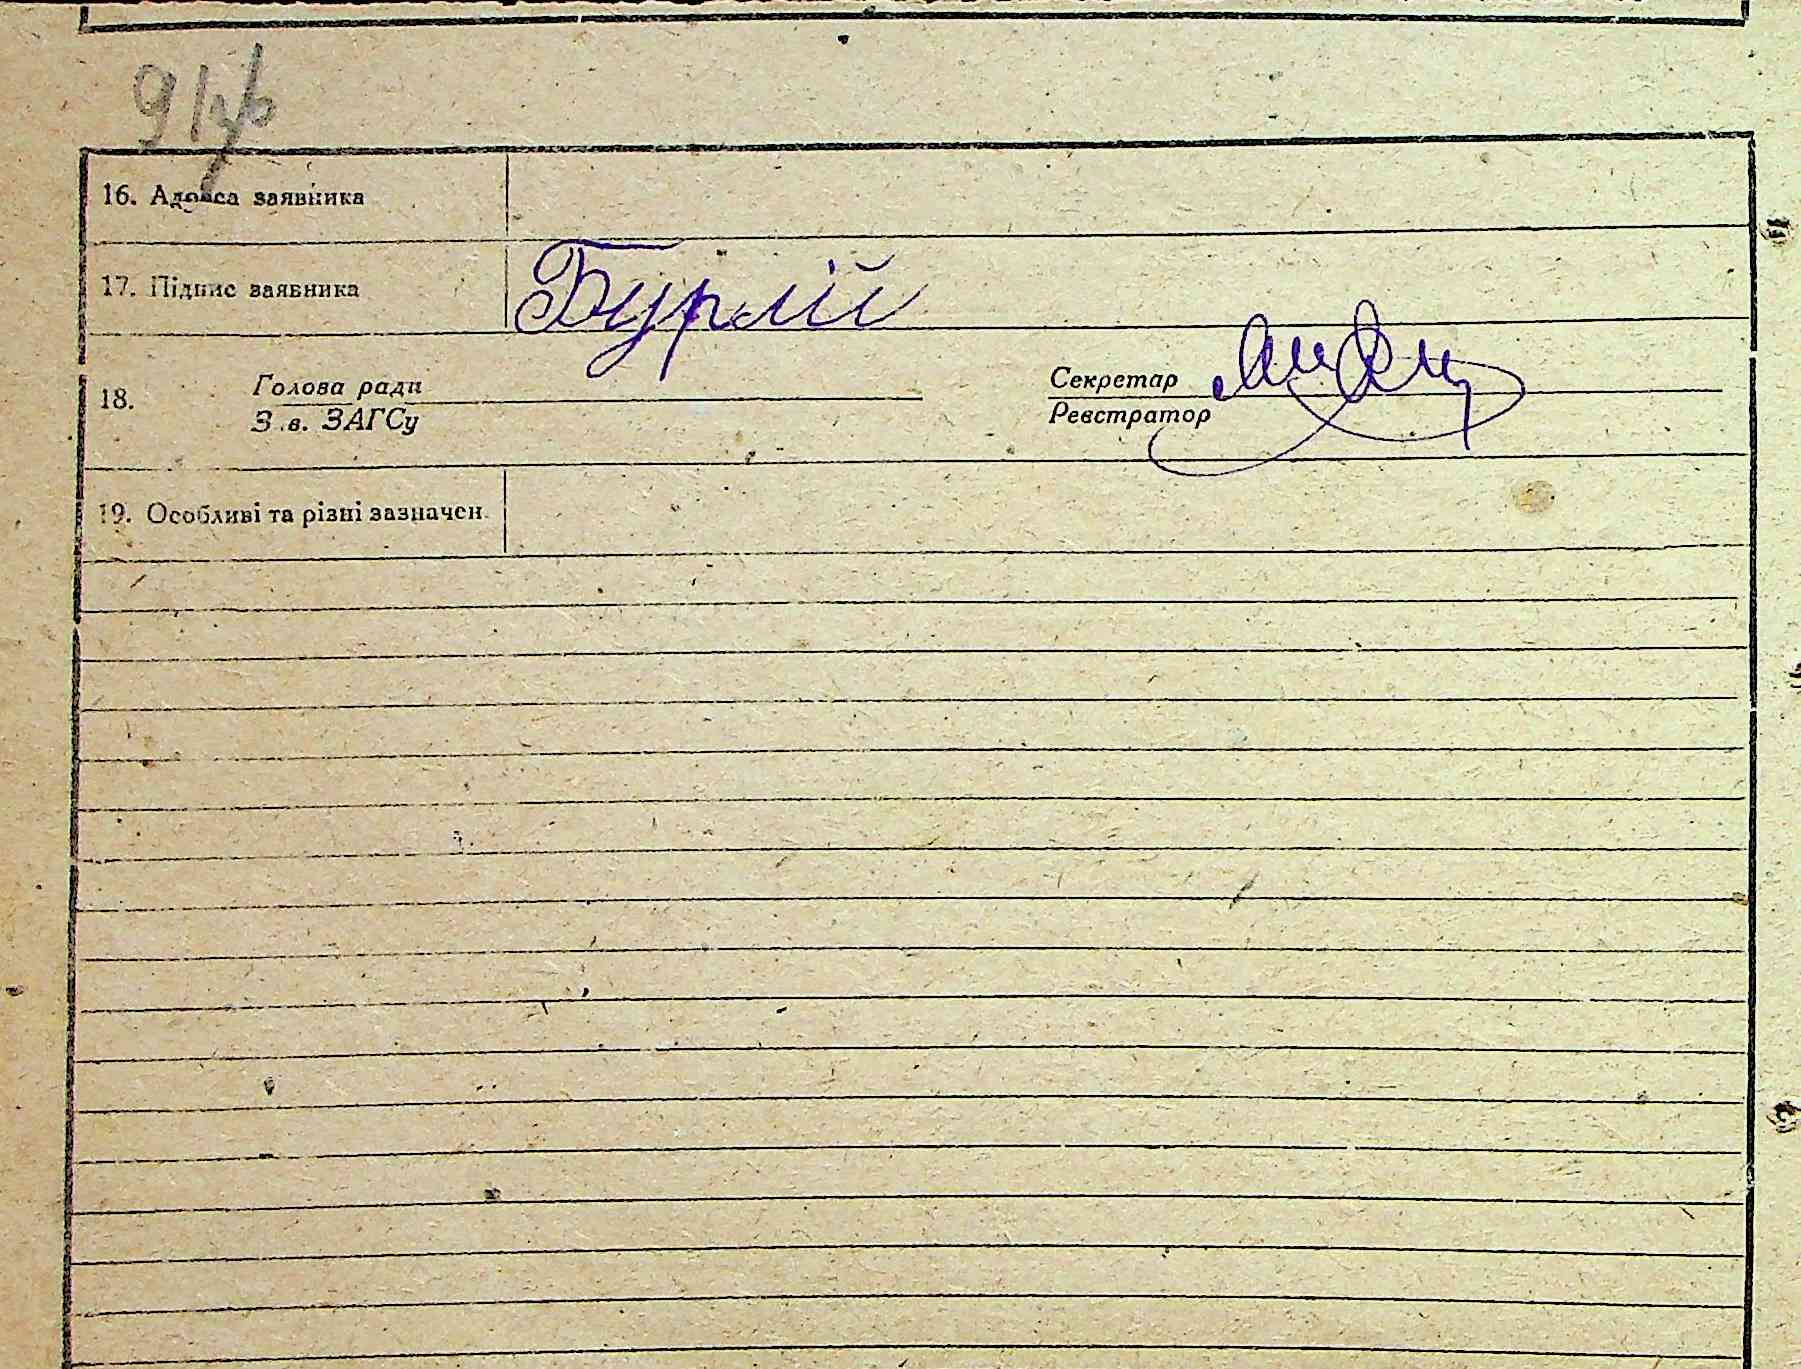 16. Адреса заявника
17. Підпис заявника Бурлій
18. Голова ради Секретар
Зав. ЗАГСу Реєстратор
19. Особливі та різні зазначен.